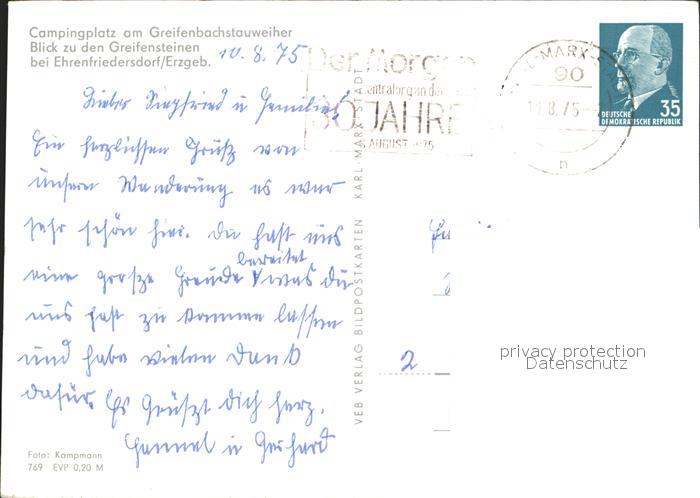 Campingplatz am Greifenbachstauweiher
Blick zu den Greifensteinen
bei Ehrenfriedersdorf/Erzgeb.
10.8.75
Lieber Siegfried u Familie!
Ein herzlichen Grüße von
unserer Wanderung es war
sehr schön hier. Du hast uns
bereitet
eine grosze Freude was du
uns hast zu kommen lassen
und habe vielen Dank
dafür. Es Grüszt dich herz.
Hannel u Gerhard
Foto: Kampmann
769 EVP 0,20 M
VEB VERLAG BILDPOSTKARTEN KARL-MARX-STADT
Der Morgen
Zentralorgan der
30 JAHRE
AUGUST 1975
KARL-MARX-STADT
90
11.8.75
n
35
DEUTSCHE
DEMOKRATISCHE REPUBLIK
2
privacy protection
Datenschutz